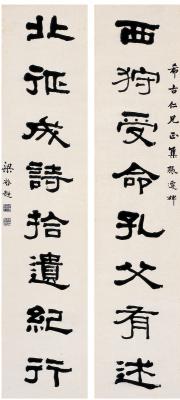 希古仁兄正集張遷碑
西狩受命孔父有述
北征成詩拾遺紀行
梁啓超